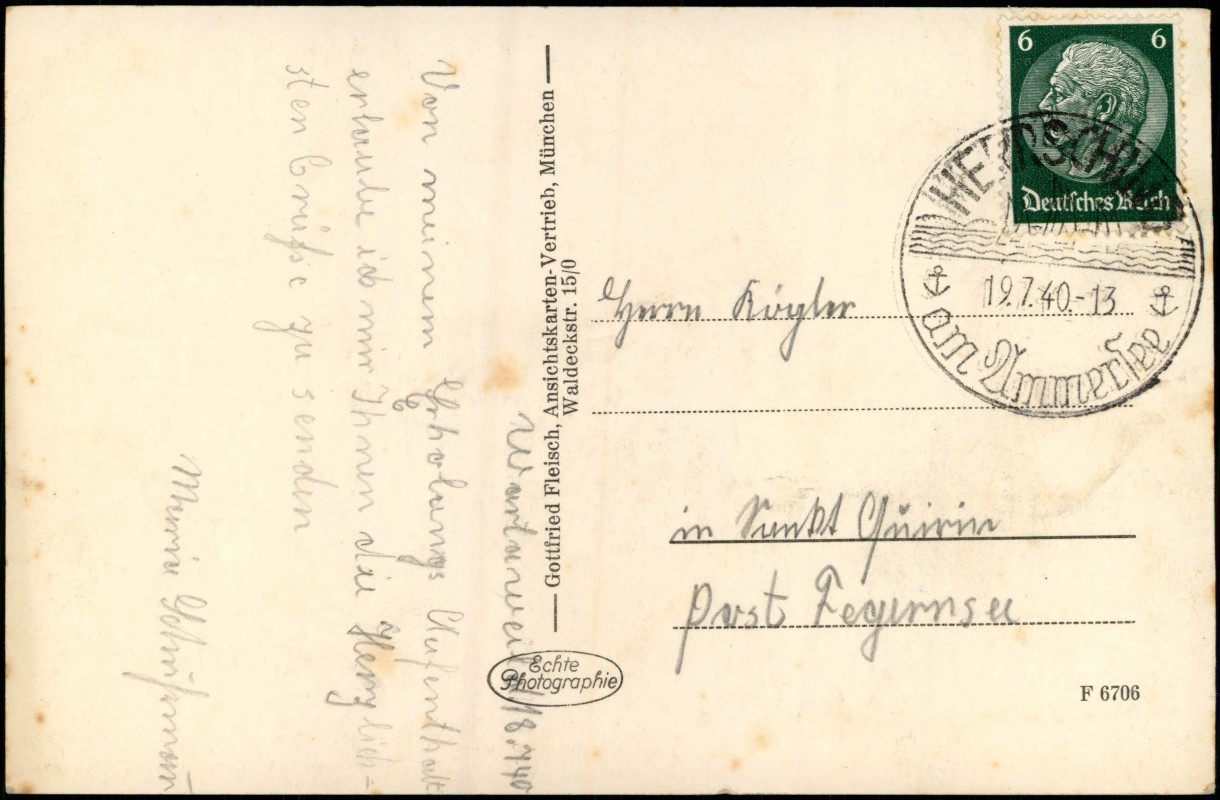 Wartaweil 18.7.40
Von meinem Erholungs Aufenthalt
erlaube ich mir Ihnen die Herzlich-
sten Grüße zu senden
Maria
Gottfried Fleisch, Ansichtskarten-Vertrieb, München
Waldeckstr. 15/0
Echte
Photographie
6 6
Deutsches Reich
HERRSCHING
19.7.40.-13
am Ammersee
Herrn Kögler
in Sankt Quirin
Post Tegernsee
F 6706